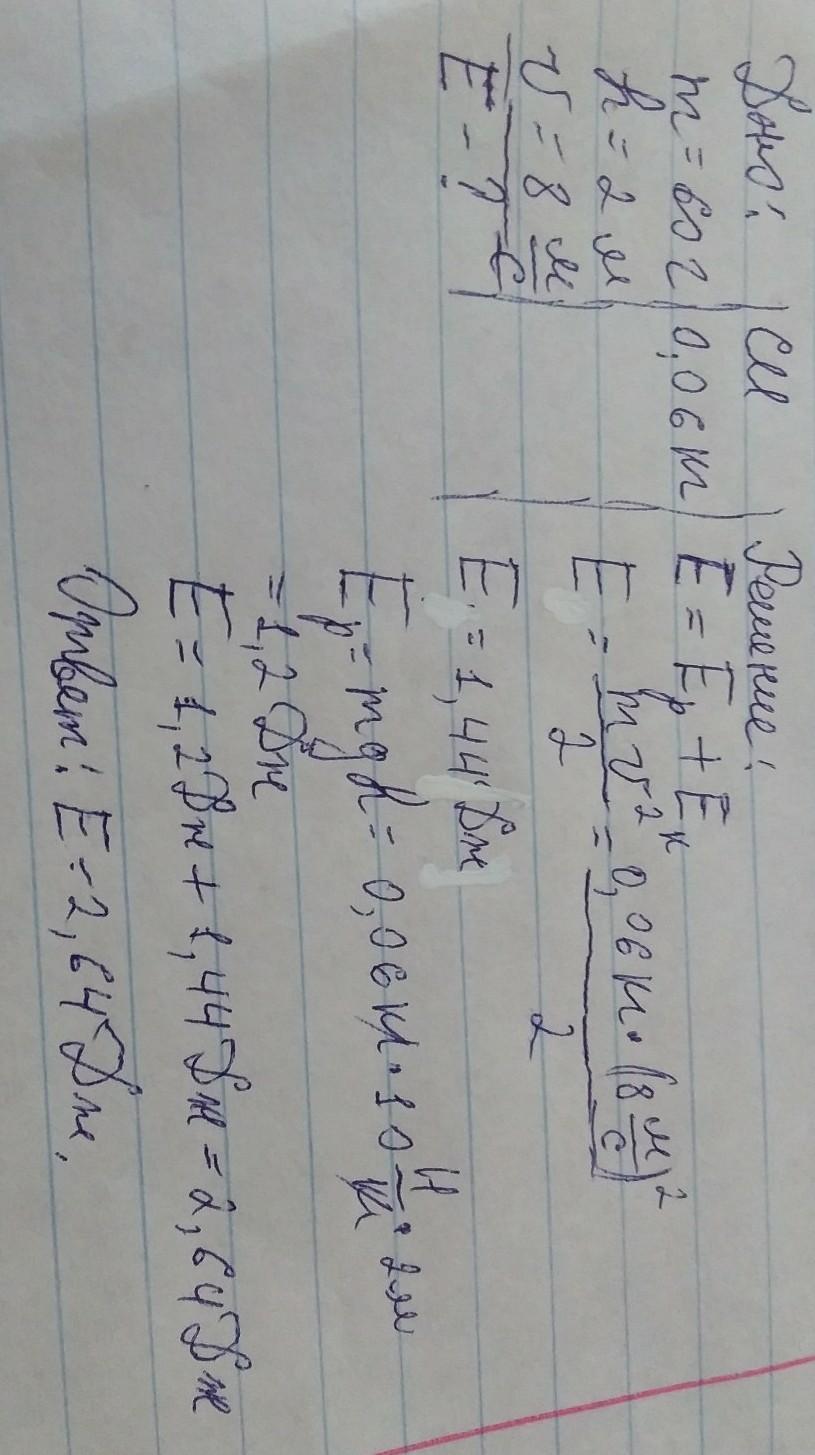 Дано:
m = 60 г
h = 2 м
v = 8 м/с
E - ?
СИ
0,06 кг
Решение:
E = Eр + Eк
E = mv²/2 = 0,06 кг · (8 м/с)²/2
E = 1,44 Дж
Eр = mgh = 0,06 кг · 10 Н/кг · 2 м
= 1,2 Дж
E = 1,2 Дж + 1,44 Дж = 2,64 Дж
Ответ: E - 2,64 Дж.